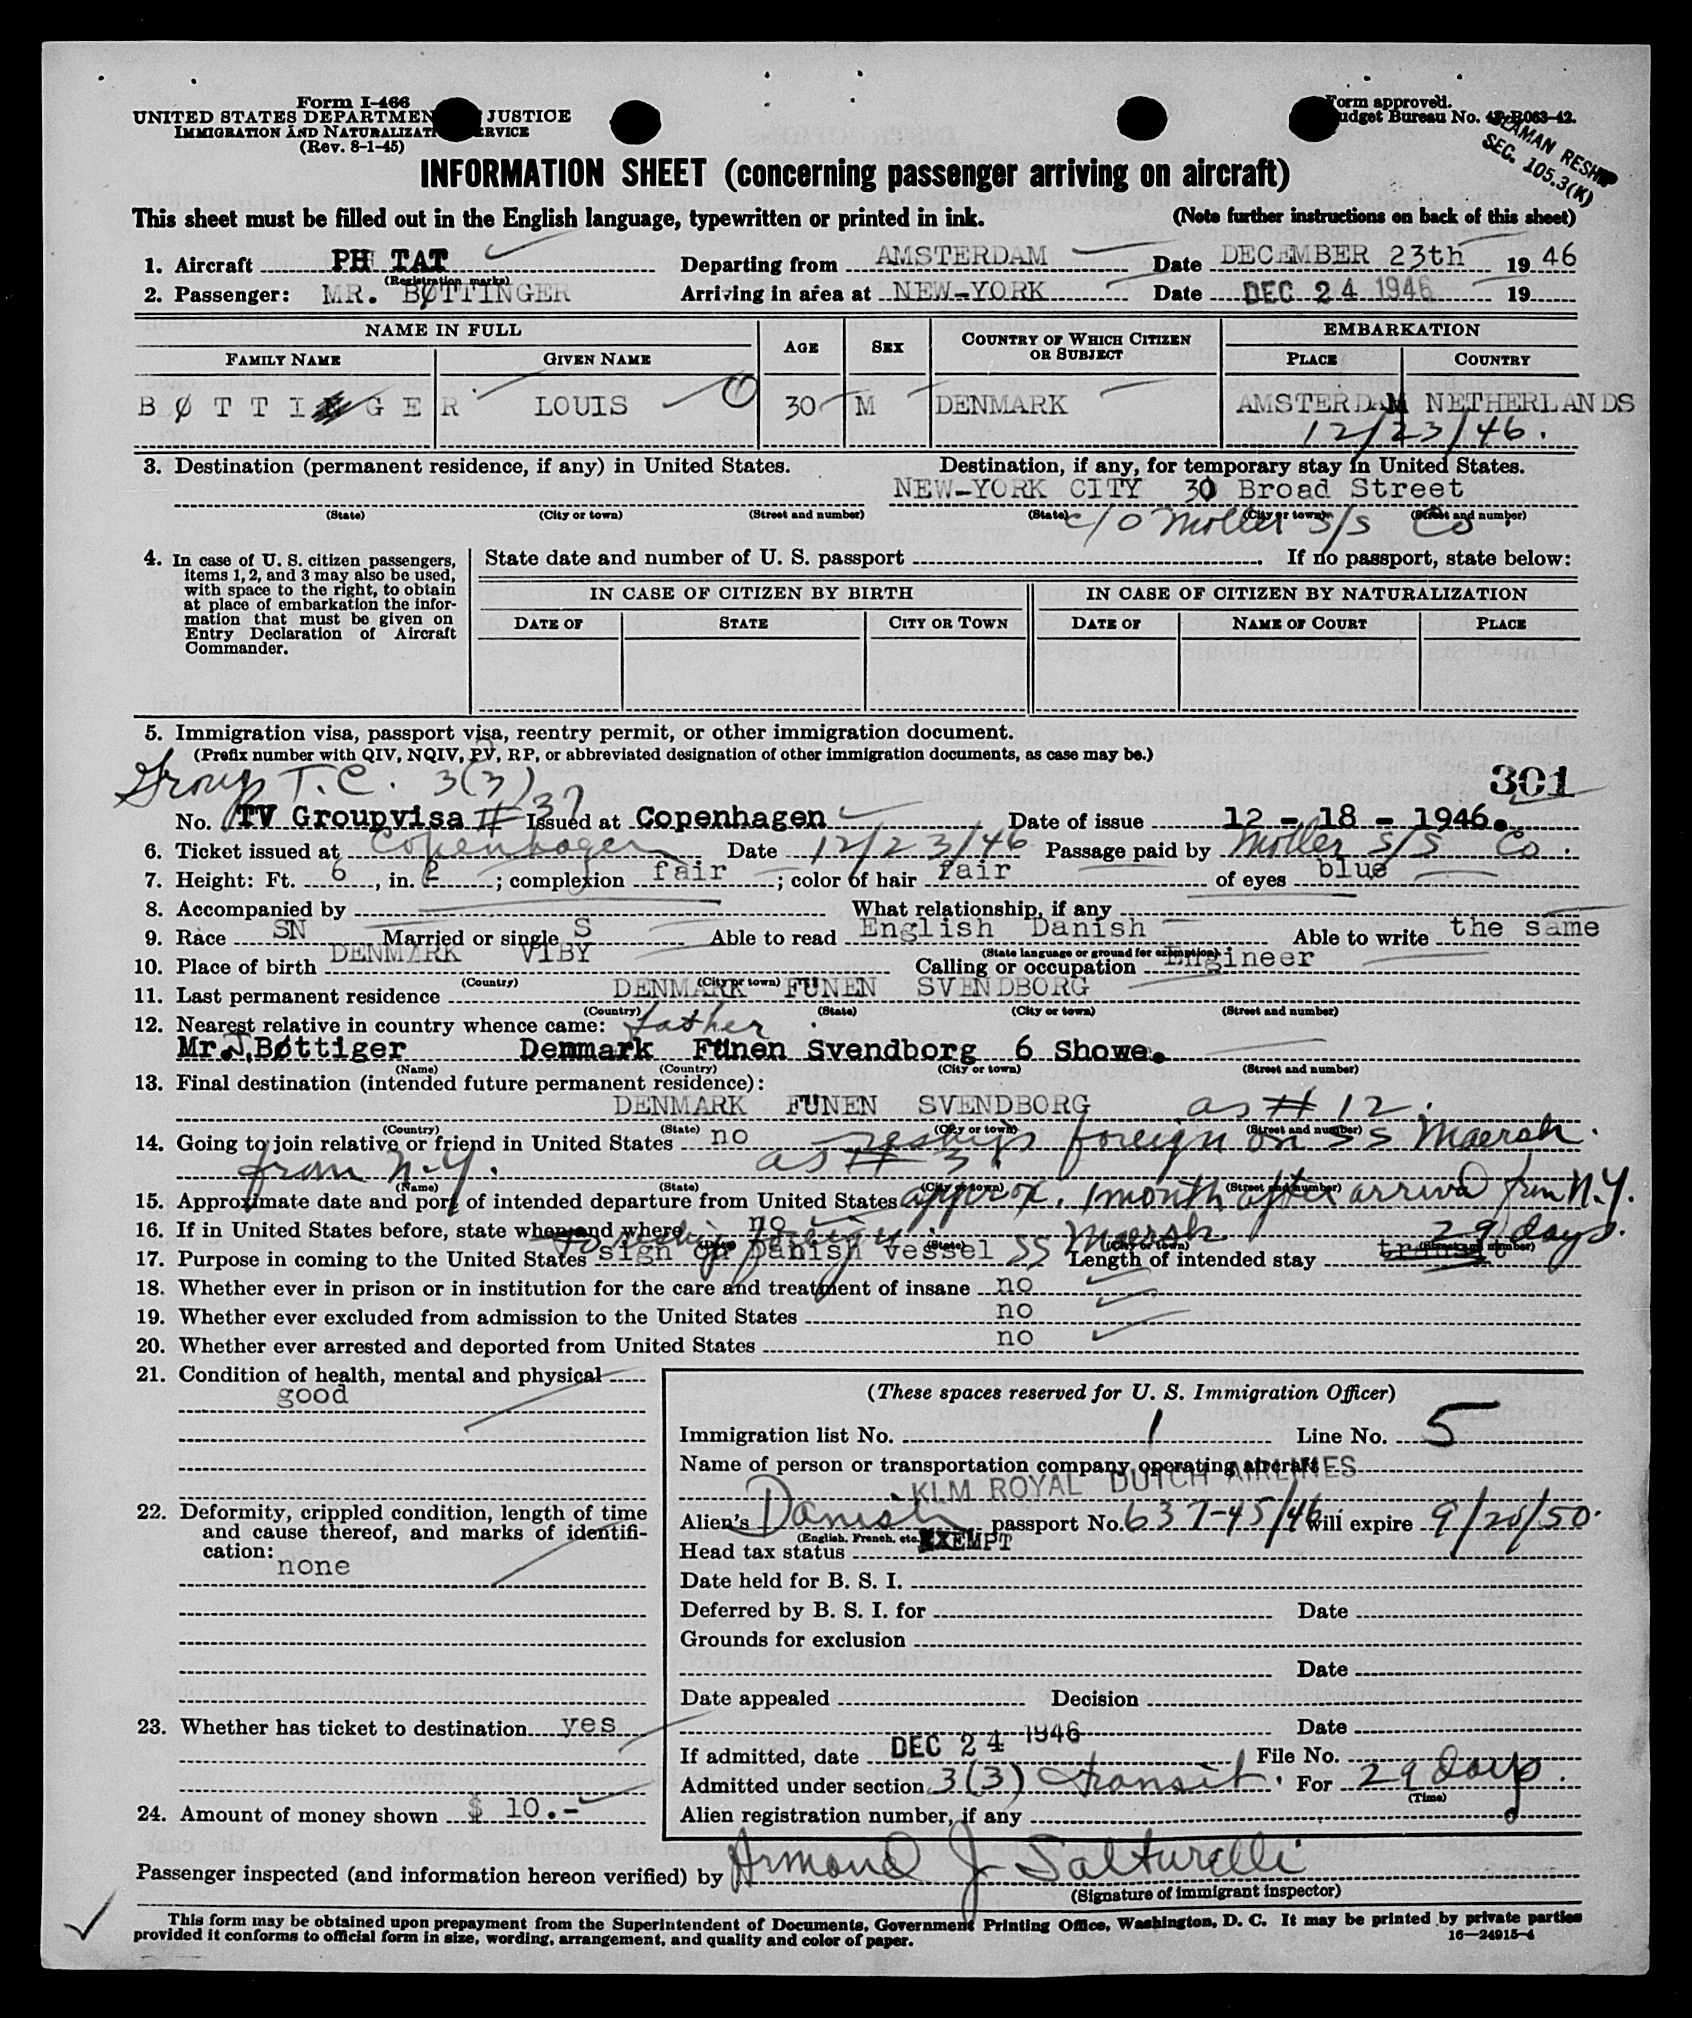 Form I-466
UNITED STATES DEPARTMEN JUSTICE
IMMIGRATION AND NATURALIZATI ERVICE
(Rev. 8-1-45)
Form approved.
Budget Bureau No. 43-R063-42.
SEAMAN RESHIP
SEC. 105.3(K)
INFORMATION SHEET (concerning passenger arriving on aircraft)
This sheet must be filled out in the English language, typewritten or printed in ink. (Note further instructions on back of this sheet)
1. Aircraft PH TAT Departing from AMSTERDAM Date DECEMBER 23th 1946
(Registration marks)
2. Passenger: MR. BØTTINGER Arriving in area at NEW-YORK Date DEC 24 1946 19
NAME IN FULL AGE SEX COUNTRY OF WHICH CITIZEN OR SUBJECT EMBARKATION
FAMILY NAME GIVEN NAME PLACE COUNTRY
BØTTIGER LOUIS 30 M DENMARK AMSTERDAM NETHERLANDS
12/23/46.
3. Destination (permanent residence, if any) in United States. Destination, if any, for temporary stay in United States.
NEW-YORK CITY 30 Broad Street
(State) (City or town) (Street and number) (State) (City or town) (Street and number)
c/o Moller S/S Co.
4. In case of U. S. citizen passengers, items 1, 2, and 3 may also be used, with space to the right, to obtain at place of embarkation the information that must be given on Entry Declaration of Aircraft Commander.
State date and number of U. S. passport If no passport, state below:
IN CASE OF CITIZEN BY BIRTH IN CASE OF CITIZEN BY NATURALIZATION
DATE OF STATE CITY OR TOWN DATE OF NAME OF COURT PLACE
5. Immigration visa, passport visa, reentry permit, or other immigration document.
(Prefix number with QIV, NQIV, PV, RP, or abbreviated designation of other immigration documents, as case may be.)
Group T.C. 3(3) 301
No. TV Groupvisa # 37 Issued at Copenhagen Date of issue 12 - 18 - 1946.
6. Ticket issued at Copenhagen Date 12/23/46 Passage paid by Moller S/S Co.
7. Height: Ft. 6, in. 2; complexion fair; color of hair fair of eyes blue
8. Accompanied by What relationship, if any
9. Race SN Married or single S Able to read English Danish Able to write the same
(State language or ground for exemption)
10. Place of birth DENMARK VIBY Calling or occupation Engineer
(Country) (City or town)
11. Last permanent residence DENMARK FUNEN SVENDBORG
(Country) (State) (City or town) (Street and number)
12. Nearest relative in country whence came: father
Mr.J.Bøttiger Denmark Funen Svendborg 6 Showe.
(Name) (Country) (City or town) (Street and number)
13. Final destination (intended future permanent residence):
DENMARK FUNEN SVENDBORG as # 12.
(Country) (State) (City or town) (Street and number)
14. Going to join relative or friend in United States no reships foreign on SS Maersk.
from N.Y. as # 3.
(Name) (State) (City or town) (Street and number)
15. Approximate date and port of intended departure from United States approx. 1 month after arrival from N.Y.
16. If in United States before, state when and where no
(State) (City or town) (Street and number)
17. Purpose in coming to the United States To reship foreign sign on Danish vessel SS Maersk Length of intended stay transit 29 days.
18. Whether ever in prison or in institution for the care and treatment of insane no
19. Whether ever excluded from admission to the United States no
20. Whether ever arrested and deported from United States no
21. Condition of health, mental and physical
good
22. Deformity, crippled condition, length of time and cause thereof, and marks of identification:
none
23. Whether has ticket to destination yes
24. Amount of money shown $ 10.-
(These spaces reserved for U. S. Immigration Officer)
Immigration list No. 1 Line No. 5
Name of person or transportation company operating aircraft
KLM ROYAL DUTCH AIRLINES
Alien's Danish passport No. 637-45/46 will expire 9/20/50.
(English, French, etc.)
Head tax status EXEMPT
Date held for B. S. I.
Deferred by B. S. I. for Date
Grounds for exclusion
Date
Date appealed Decision
Date
If admitted, date DEC 24 1946 File No.
Admitted under section 3(3) transit. For 29 days.
(Time)
Alien registration number, if any
Passenger inspected (and information hereon verified) by Armond J Salturelli
(Signature of immigrant inspector)
This form may be obtained upon prepayment from the Superintendent of Documents, Government Printing Office, Washington, D. C. It may be printed by private parties
provided it conforms to official form in size, wording, arrangement, and quality and color of paper. 16—24915-4